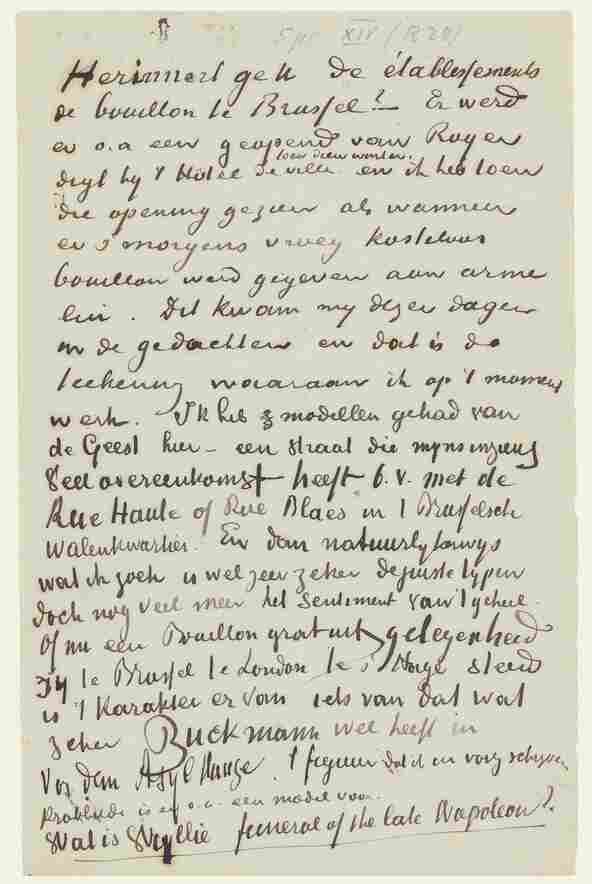 Herinnert ge U de établissements
de bouillon te Brussel? – Er werd
er o.a een geopend van Royer
digt by 't Hotel de ville en ik heb toen
die opening gezien als wanneer
er 's morgens vroeg kosteloos
bouillon werd gegeven aan arme
lui. Dit kwam my dezer dagen
in de gedachten en dat is de
teekening waaraan ik op 't moment
werk. Ik heb 3 modellen gehad van
de Geest hier – een straat die mynsinziens
veel overeenkomst heeft b.v. met de
Rue Haute of Rue Blaes in 't Brusselsche
Walenkwartier. En dan natuurlykerwys
wat ik zoek is wel zeer zeker de juiste typen
doch nog veel meer het sentiment van 't geheel.
Of nu een Bouillon gratuit gelegenheid
zy te Brussel te London te 's Hage steeds
is 't Karakter er van iets van dat wat
zeker Buckmann wel heeft in
Vor dem Asyl Hause. 't figuur dat ik in vorig schryven
krabbelde is er o.a. een model voor.
Wat is Wyllie funeral of the late Napoleon?.